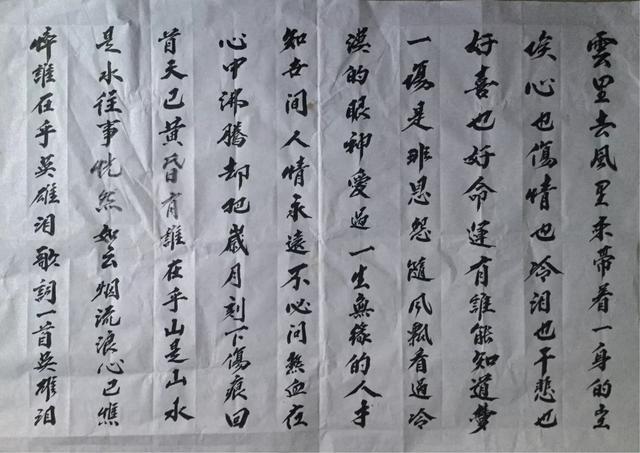 雲里去風里来帶着一身的尘
埃心也傷情也冷泪也干悲也
好喜也好命運有誰能知道夢
一場是非恩怨随风飄看過冷
漠的眼神愛過一生無緣的人才
知世間人情永遠不必問熱血在
心中沸騰却把歲月刻下傷痕回
首天已黄昏有誰在乎山是山水
是水往事恍然如云烟流浪心已憔
悴誰在乎英雄泪歌詞一首英雄泪